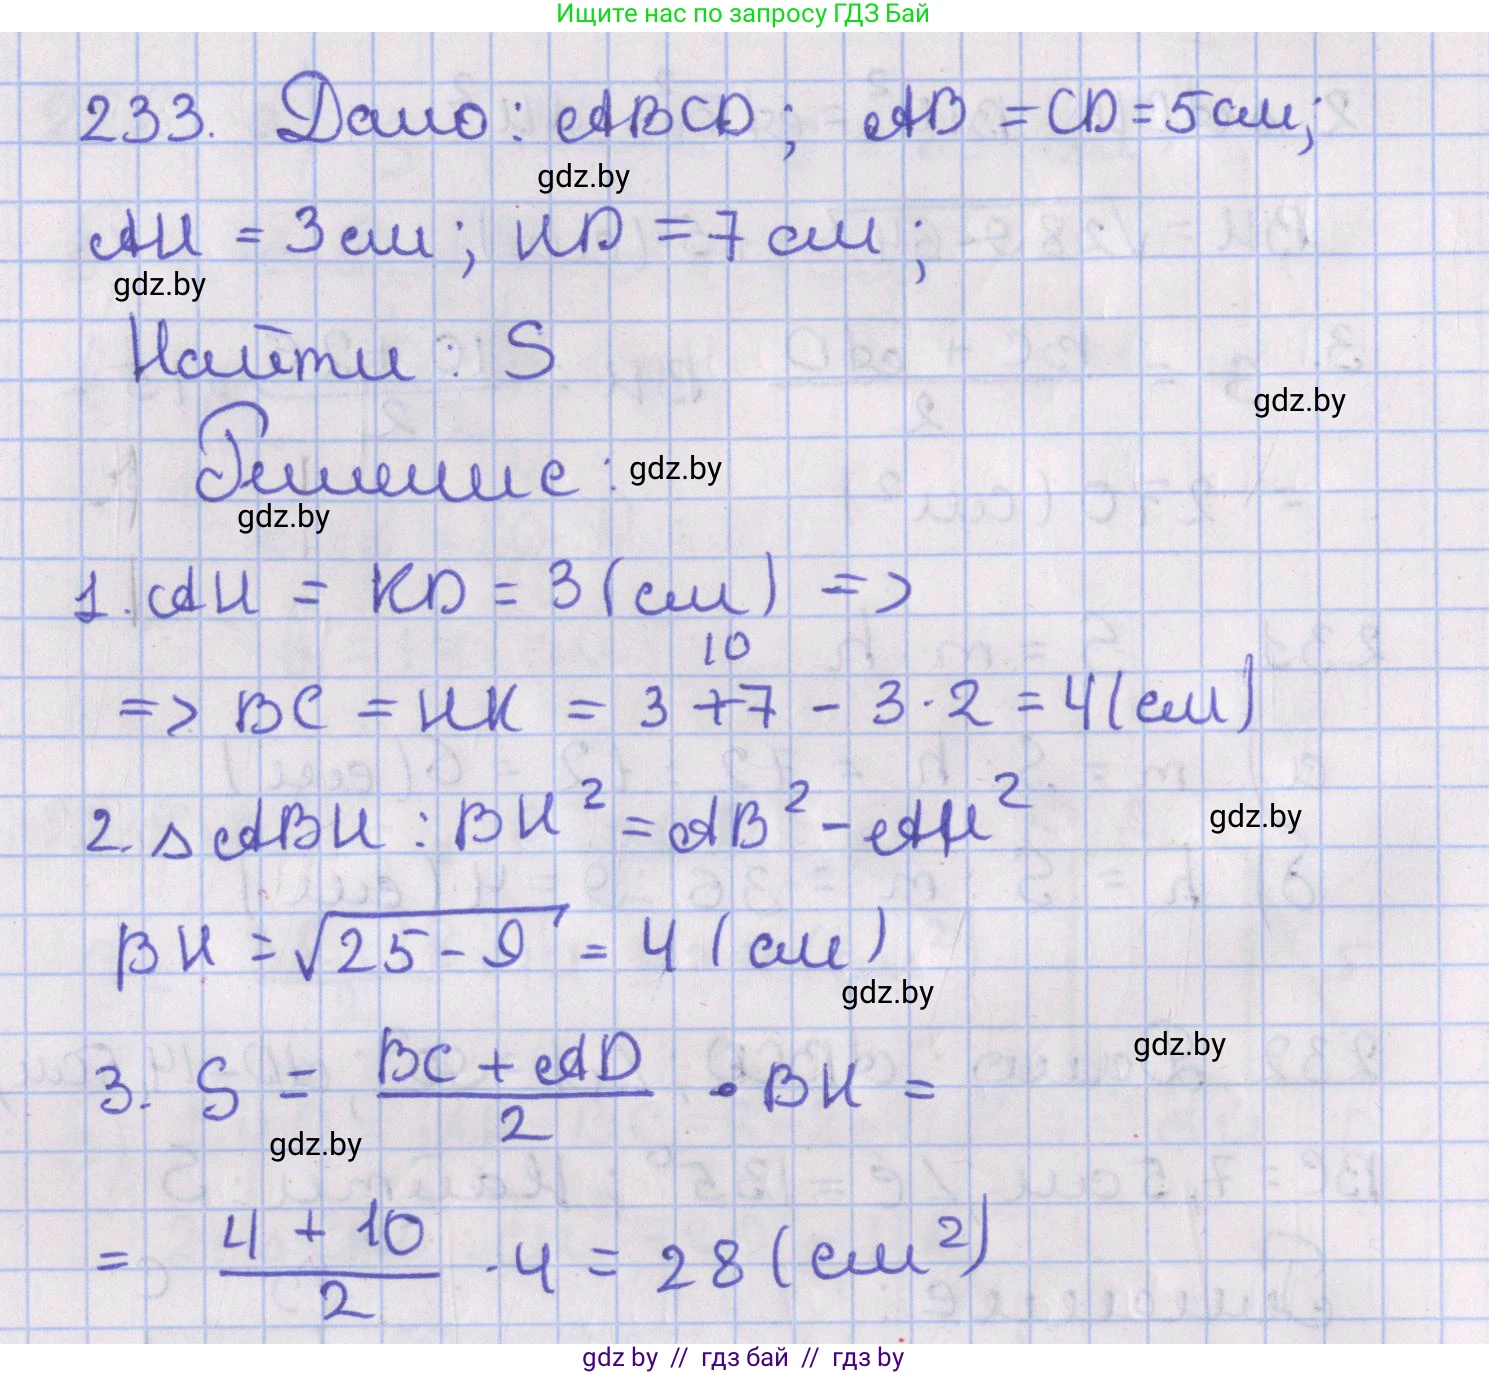 Ищите нас по запросу ГДЗ Бай
233. Дано: ABCD; AB = CD = 5 см;
gdz.by
AH = 3 см; HD = 7 см;
gdz.by
Найти: S
gdz.by
Решение:
gdz.by
gdz.by
1. AH = KD = 3 (см) =>
10
=> BC = HK = 3 + 7 - 3 · 2 = 4 (см)
2. △ ABH : BH² = AB² - AH²
gdz.by
BH = √25 - 9 = 4 (см)
gdz.by
gdz.by
3. S = (BC + AD)/2 · BH =
gdz.by
= (4 + 10)/2 · 4 = 28 (см²)
gdz by // гдз бай // гдз by